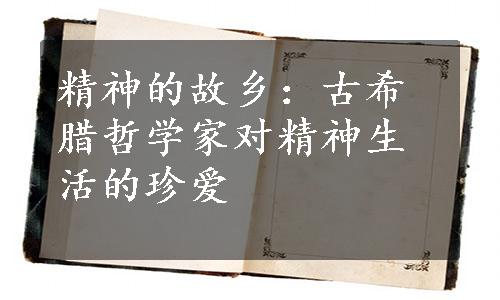 精神的故乡：古希
腊哲学家对精神生
活的珍爱